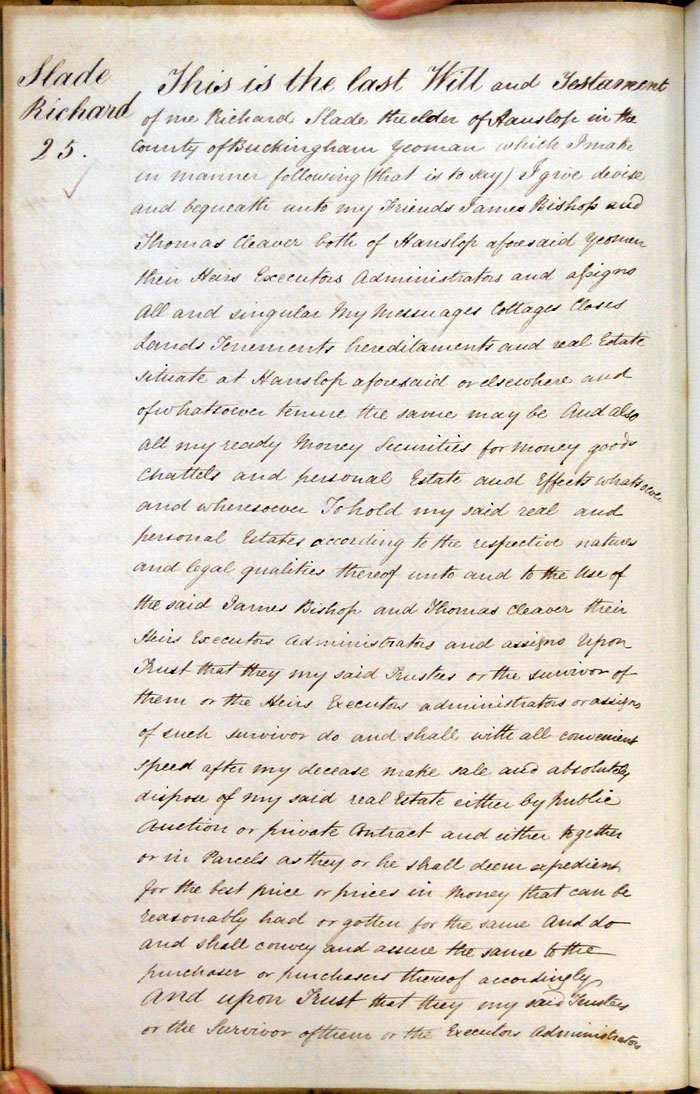 Slade
Richard
25.
This is the last Will and Testament
of me Richard Slade the elder of Hanslop in the
County of Buckingham Yeoman which I make
in manner following (that is to say) I give devise
and bequeath unto my Friends James Bishop and
Thomas Cleaver both of Hanslop aforesaid Yeomen
their Heirs Executors Administrators and assigns
All and singular My Messuages Cottages Closes
Lands Tenements hereditaments and real Estate
situate at Hanslop aforesaid or elsewhere and
of whatsoever tenure the same may be And also
all my ready Money Securities for money goods
Chattels and personal Estate and Effects whatsoever
and wheresoever To hold my said real and
personal Estates according to the respective natures
and legal qualities thereof unto and to the Use of
the said James Bishop and Thomas Cleaver their
Heirs Executors Administrators and assigns Upon
Trust that they my said Trustees or the survivor of
them or the Heirs Executors administrators or assigns
of such survivor do and shall with all convenient
speed after my decease make sale and absolutely
dispose of my said real Estate either by public
Auction or private Contract and either together
or in Parcels as they or he shall deem expedient
for the best price or prices in Money that can be
reasonably had or gotten for the same And do
and shall convey and assure the same to the
purchaser or purchasers thereof accordingly
And upon Trust that they my said Trustees
or the Survivor of them or the Executors Administrators